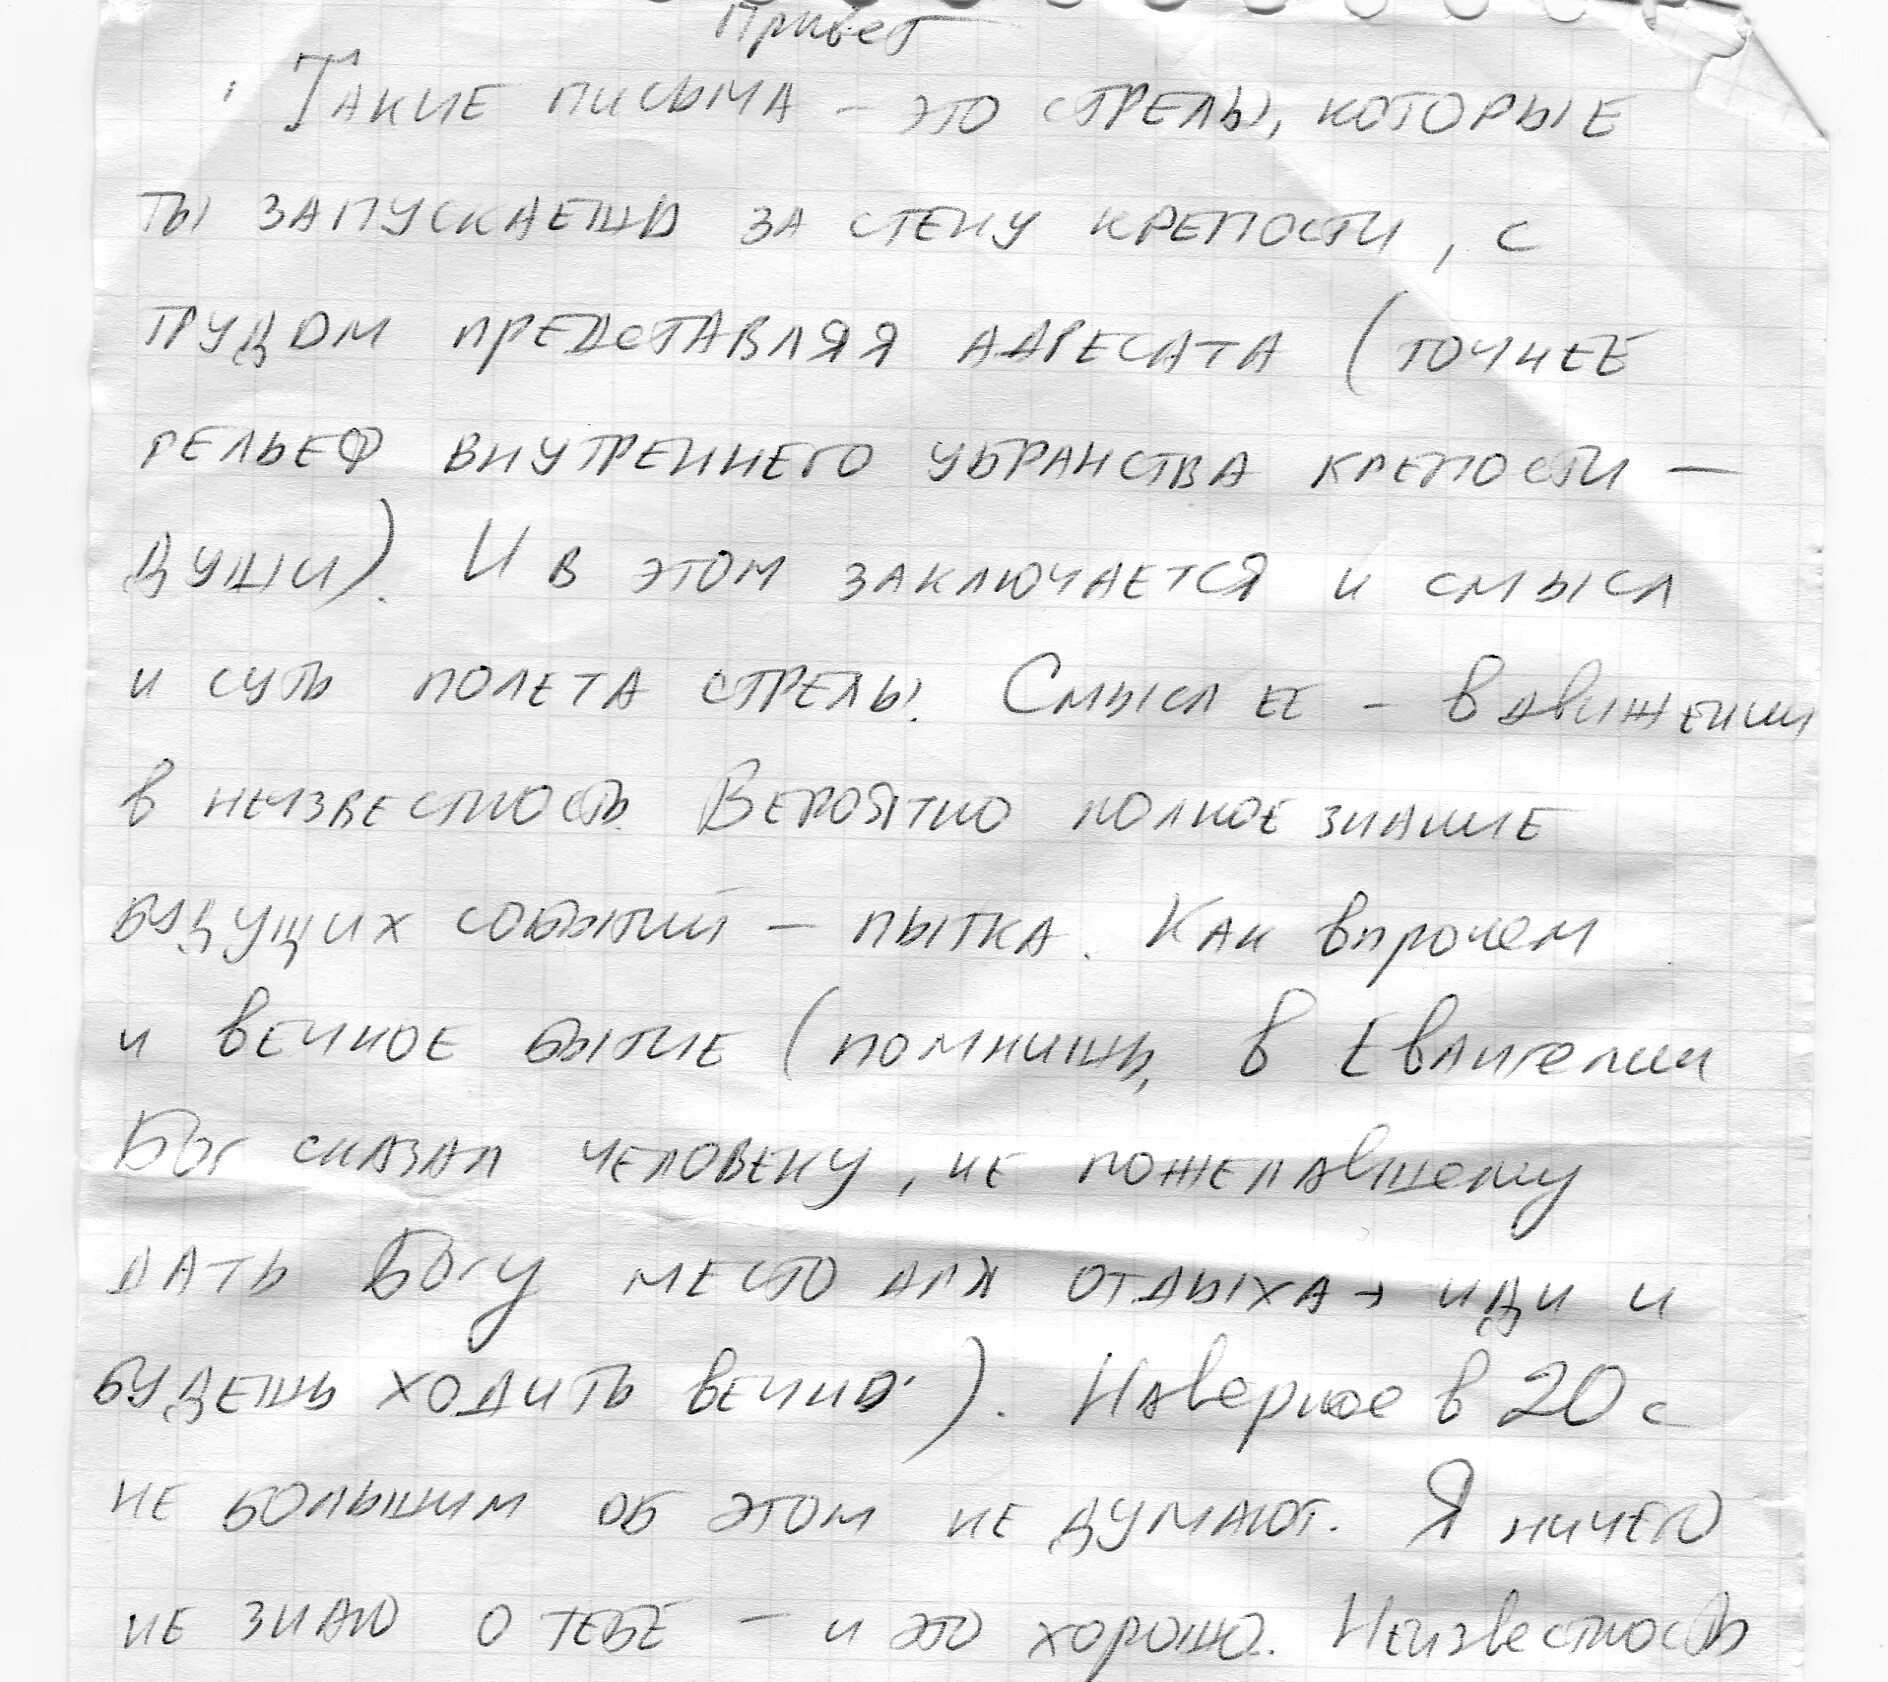 Привет
Такие письма – это стрелы, которые
ты запускаешь за стену крепости, с
трудом представляя адресата (точнее
рельеф внутреннего убранства крепости –
души). И в этом заключается и смысл
и суть полета стрелы. Смысл ее – в движении
в неизвестность. Вероятно полное знание
будущих событий – пытка. Как впрочем
и вечное бытие (помнишь, в Евангелии
Бог сказал человеку, не пожелавшему
дать Богу место для отдыха → иди и
будешь ходить вечно). Наверное в 20 с
не большим об этом не думают. Я ничего
не знаю о тебе – и это хорошо. Неизвестность